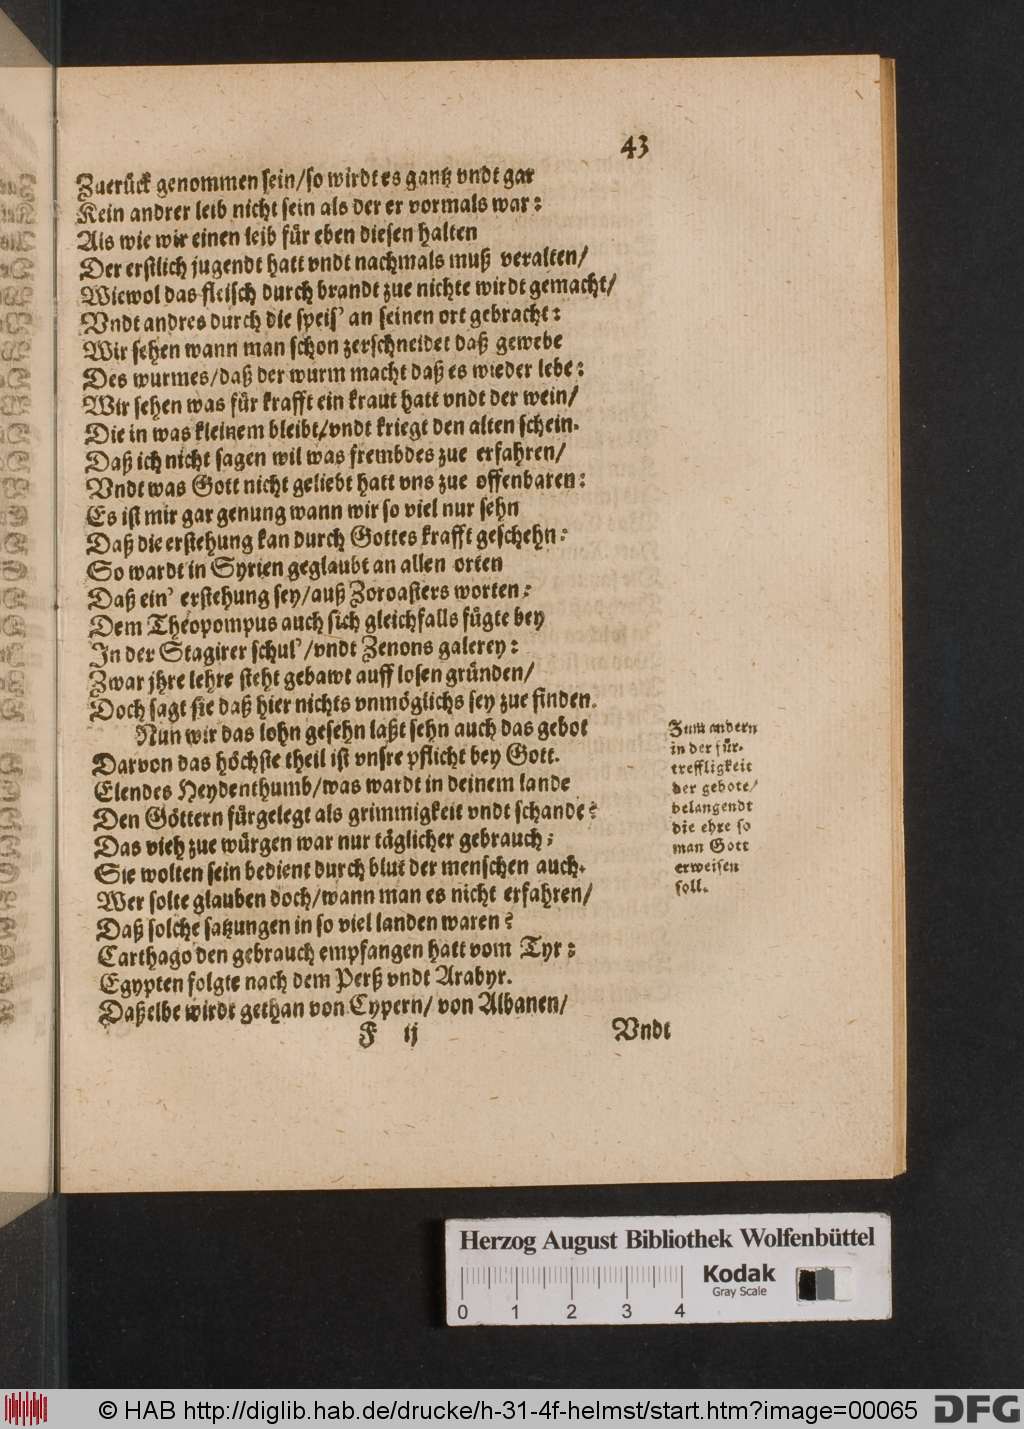 43
Zuerück genommen sein/so wirdt es gantz vndt gar
Kein andrer leib nicht sein als der er vormals war:
Als wie wir einen leib für eben diesen halten
Der erstlich jugendt hatt vndt nachmals muß veralten/
Wiewol das fleisch durch brandt zue nichte wirdt gemacht/
Vndt andres durch die speis' an seinen ort gebracht:
Wir sehen wann man schon zerschneidet daß gewebe
Des wurmes/daß der wurm macht daß es wieder lebe:
Wir sehen was für krafft ein kraut hatt vndt der wein/
Die in was kleinem bleibt/vndt kriegt den alten schein.
Daß ich nicht sagen wil was frembdes zue erfahren/
Vndt was Gott nicht geliebt hatt vns zue offenbaren:
Es ist mir gar genung wann wir so viel nur sehn
Daß die erstehung kan durch Gottes krafft geschehn:
So wardt in Syrien geglaubt an allen orten
Daß ein' erstehung sey/auß Zoroasters worten:
Dem Theopompus auch sich gleichfalls fügte bey
In der Stagirer schul'/vndt Zenons galerey:
Zwar jhre lehre steht gebawt auff losen gründen/
Doch sagt sie daß hier nichts vnmöglichs sey zue finden.
Nun wir das lohn gesehn laßt sehn auch das gebot
Darvon das höchste theil ist vnsre pflicht bey Gott.
Elendes Heydenthumb/was wardt in deinem lande
Den Göttern fürgelegt als grimmigkeit vndt schande?
Das vieh zue würgen war nur täglicher gebrauch;
Sie wolten sein bedient durch blut der menschen auch.
Wer solte glauben doch/wann man es nicht erfahren/
Daß solche satzungen in so viel landen waren?
Carthago den gebrauch empfangen hatt vom Tyr:
Egypten folgte nach dem Perß vndt Arabyr.
Daßelbe wirdt gethan von Cypern/ von Albanen/
F ij Vndt
Zum andern
in der für-
treffligkeit
der gebote/
belangendt
die ehre so
man Gott
erweisen
soll.
Herzog August Bibliothek Wolfenbüttel
Kodak
Gray Scale
0 1 2 3 4
© HAB http://diglib.hab.de/drucke/h-31-4f-helmst/start.htm?image=00065
DFG